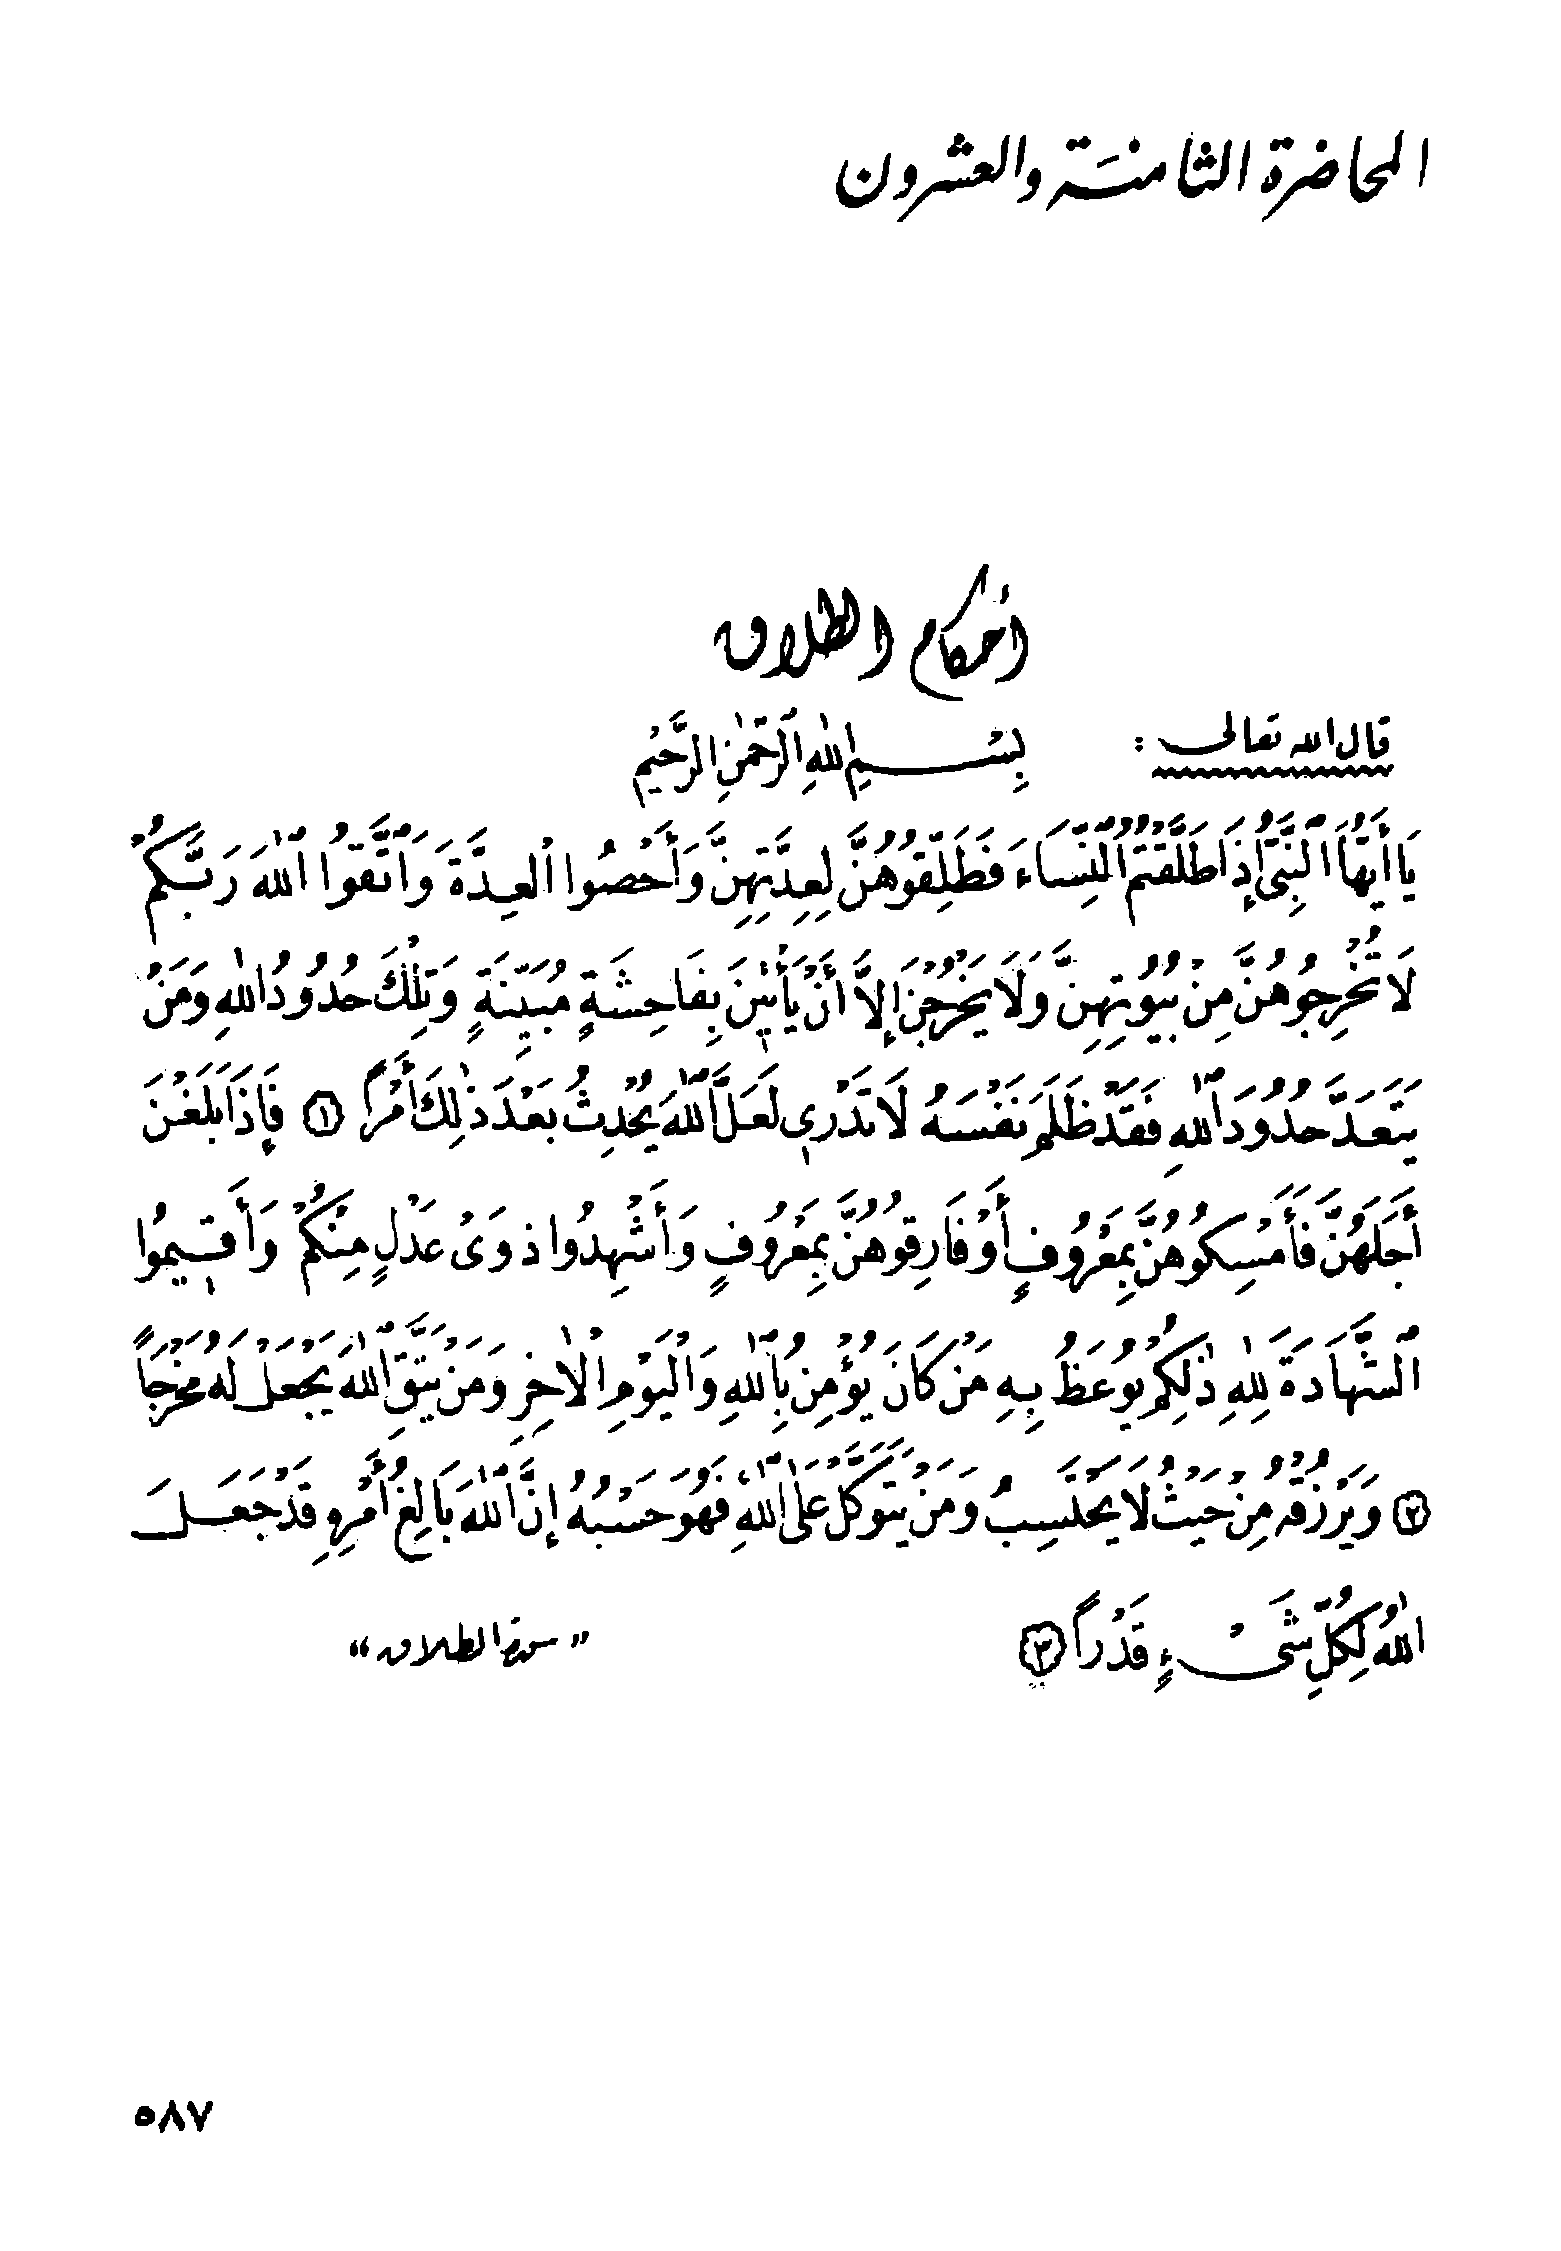 المحاضرة الثامنة والعشرون
أحكام الطلاق
قال الله تعالى : بِسْمِ اللهِ الرَّحْمٰنِ الرَّحِيْمِ
يَا أَيُّهَا النَّبِىُّ إِذَا طَلَّقْتُمُ النِّسَاءَ فَطَلِّقُوْهُنَّ لِعِدَّتِهِنَّ وَأَحْصُوا الْعِدَّةَ وَاتَّقُوا اللهَ رَبَّكُمْ
لَا تُخْرِجُوْهُنَّ مِنْ بُيُوْتِهِنَّ وَلَا يَخْرُجْنَ إِلاَّ أَنْ يَأْتِيْنَ بِفَاحِشَةٍ مُبَيِّنَةٍ وَتِلْكَ حُدُوْدُ اللهِ وَمَنْ
يَتَعَدَّ حُدُوْدَ اللهِ فَقَدْ ظَلَمَ نَفْسَهُ لَا تَدْرِى لَعَلَّ اللهَ يُحْدِثُ بَعْدَ ذٰلِكَ أَمْرًا ١ فَإِذَا بَلَغْنَ
أَجَلَهُنَّ فَأَمْسِكُوْهُنَّ بِمَعْرُوْفٍ أَوْ فَارِقُوْهُنَّ بِمَعْرُوْفٍ وَأَشْهِدُوا ذَوَىْ عَدْلٍ مِنْكُمْ وَأَقِيمُوا
الشَّهَادَةَ لِلهِ ذٰلِكُمْ يُوْعَظُ بِهِ مَنْ كَانَ يُؤْمِنُ بِاللهِ وَالْيَوْمِ الْاٰخِرِ وَمَنْ يَتَّقِ اللهَ يَجْعَلْ لَهُ مَخْرَجًا
٢ وَيَرْزُقْهُ مِنْ حَيْثُ لَا يَحْتَسِبُ وَمَنْ يَتَوَكَّلْ عَلَى اللهِ فَهُوَ حَسْبُهُ إِنَّ اللهَ بَالِغُ أَمْرِهِ قَدْ جَعَلَ
اللهُ لِكُلِّ شَىْءٍ قَدْرًا ٣ « سورة الطلاق »
٥٨٧